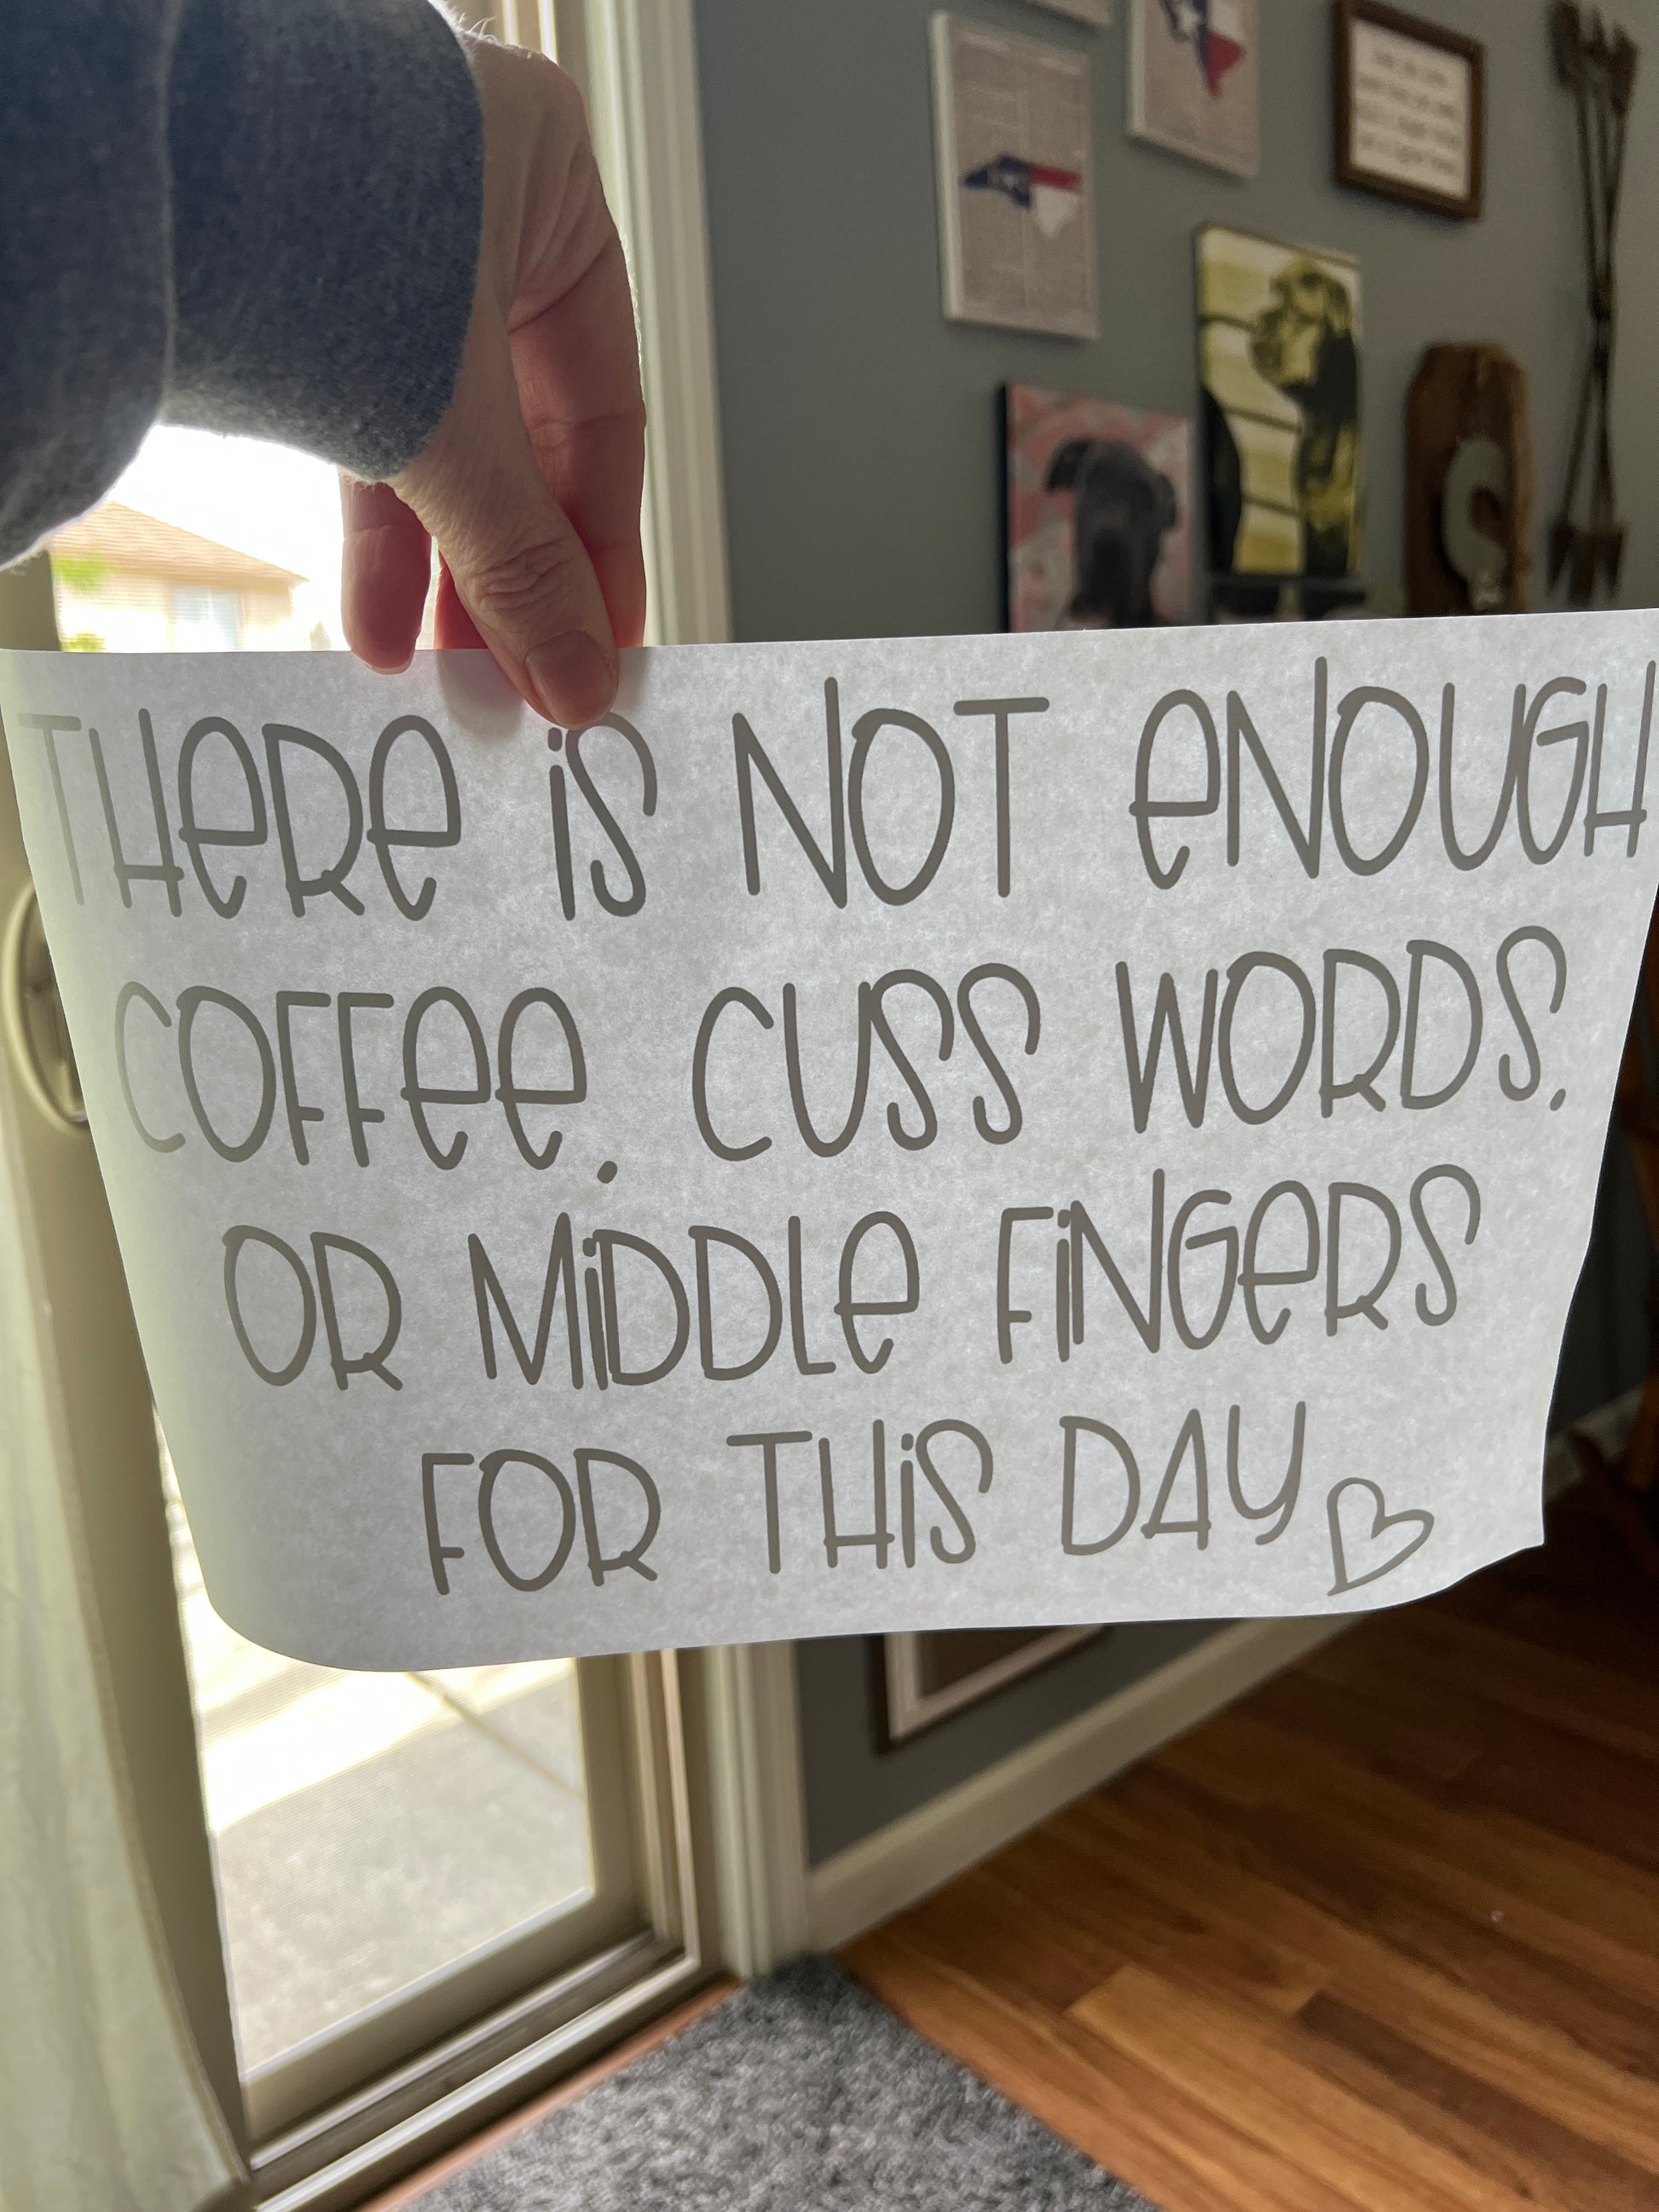 THeRe iS NOT eNOUGH
COFFee. CUSS WORDS.
OR MiDDLe FiNGeRS
FOR THiS DAY